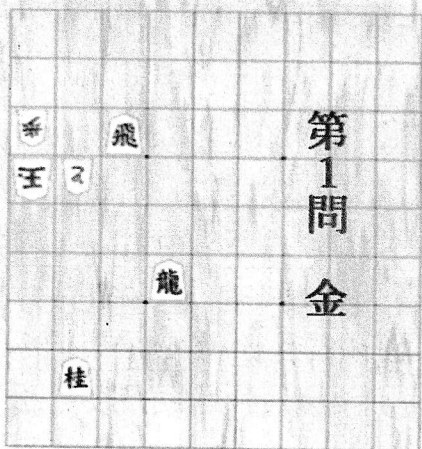 第1問 金
歩
飛
王
と
龍
桂